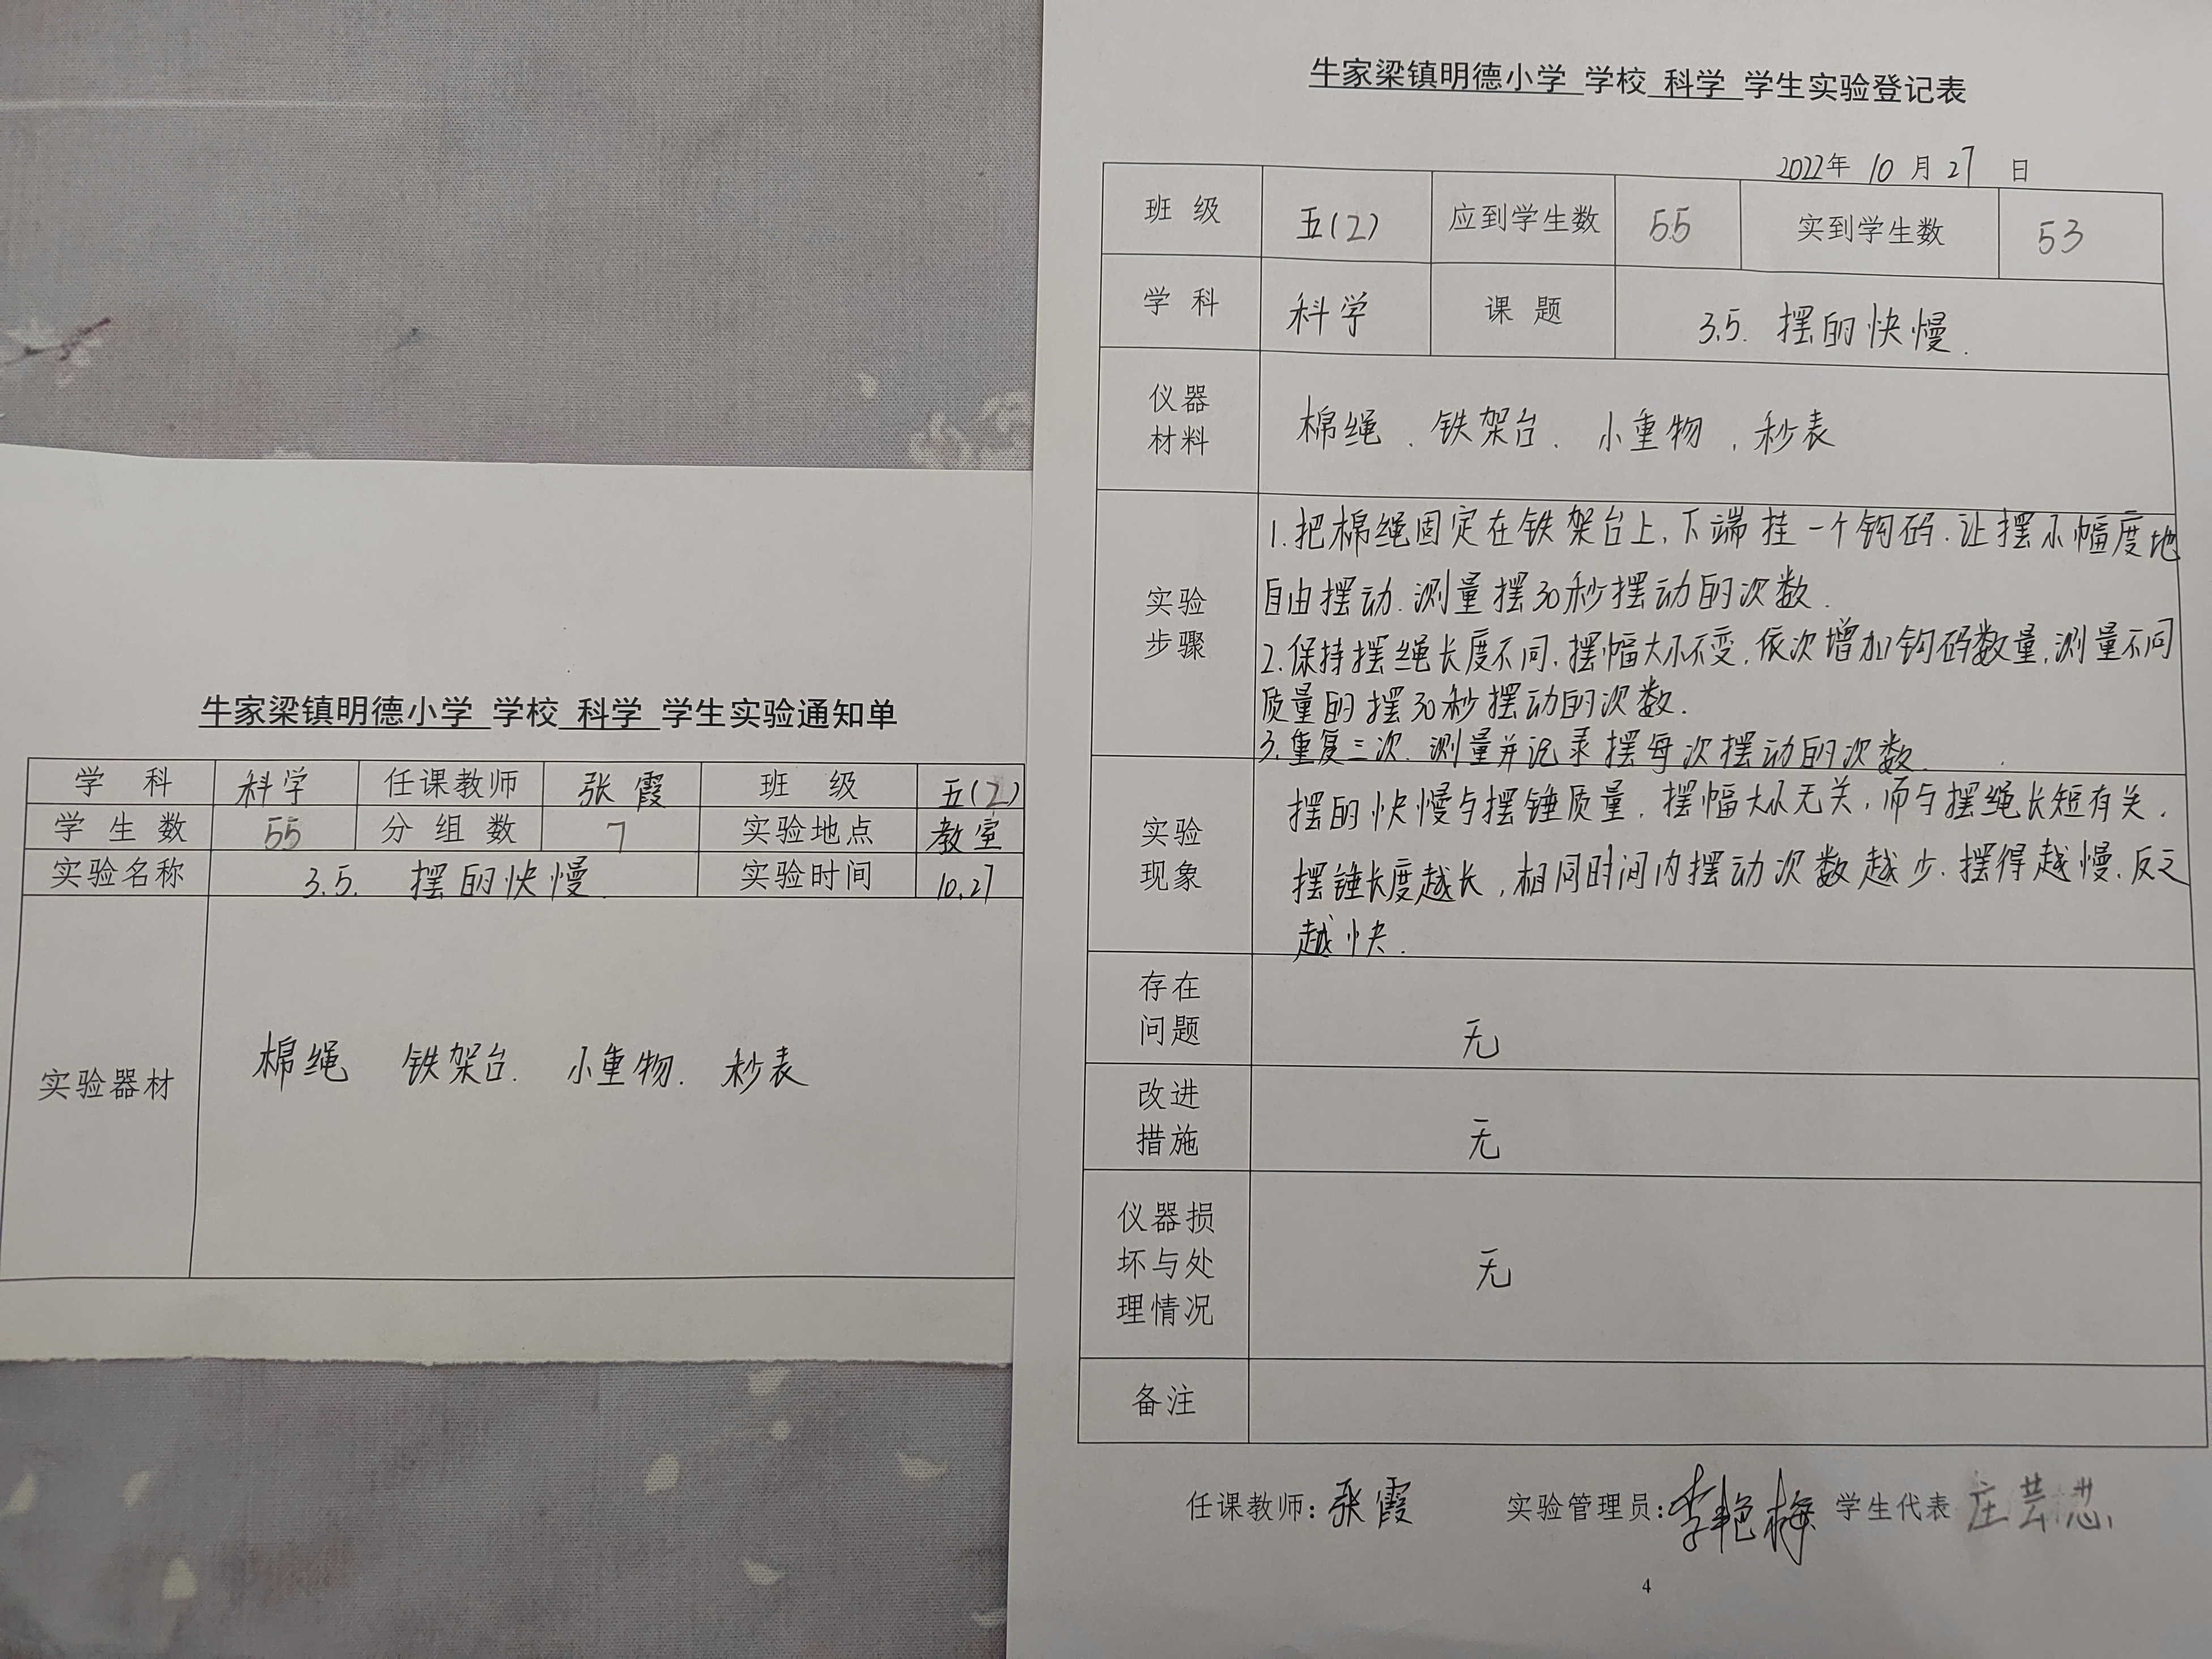 牛家梁镇明德小学 学校 科学 学生实验通知单
学 科 科学 任课教师 张霞 班 级 五(2)
学 生 数 55 分 组 数 7 实验地点 教室
实验名称 3.5. 摆的快慢. 实验时间 10.27
实验器材 棉绳 铁架台. 小重物. 秒表
牛家梁镇明德小学 学校 科学 学生实验登记表
2022年 10 月 27 日
班 级 五(2) 应到学生数 55 实到学生数 53
学 科 科学 课 题 3.5. 摆的快慢.
仪器
材料
棉绳 . 铁架台. 小重物 , 秒表
实验
步骤
1.把棉绳固定在铁架台上,下端挂一个钩码.让摆小幅度地
自由摆动.测量摆30秒摆动的次数.
2.保持摆绳长度不同.摆幅大小不变,依次增加钩码数量,测量不同
质量的摆30秒摆动的次数.
3.重复三次.测量并记录摆每次摆动的次数.
实验
现象
摆的快慢与摆锤质量.摆幅大小无关,而与摆绳长短有关.
摆锤长度越长,相同时间内摆动次数越少.摆得越慢.反之
越快.
存在
问题
无
改进
措施
无
仪器损
坏与处
理情况
无
备注
任课教师:张霞 实验管理员:李艳梅 学生代表 庄芸
4